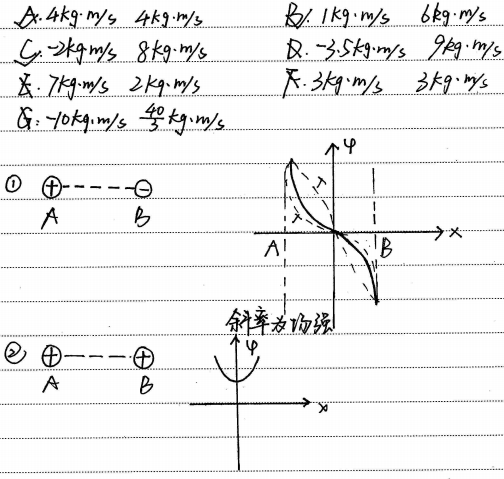 A. 4kg·m/s 4kg·m/s B. 1kg·m/s 6kg·m/s
C. -2kg·m/s 8kg·m/s D. -3.5kg·m/s 9kg·m/s
E. 7kg·m/s 2kg·m/s F. 3kg·m/s 3kg·m/s
G: -10kg·m/s 40/3 kg·m/s
φ
① ⊕ ⊖
A B
A B x
斜率为场强
② ⊕ ⊕ φ
A B
x